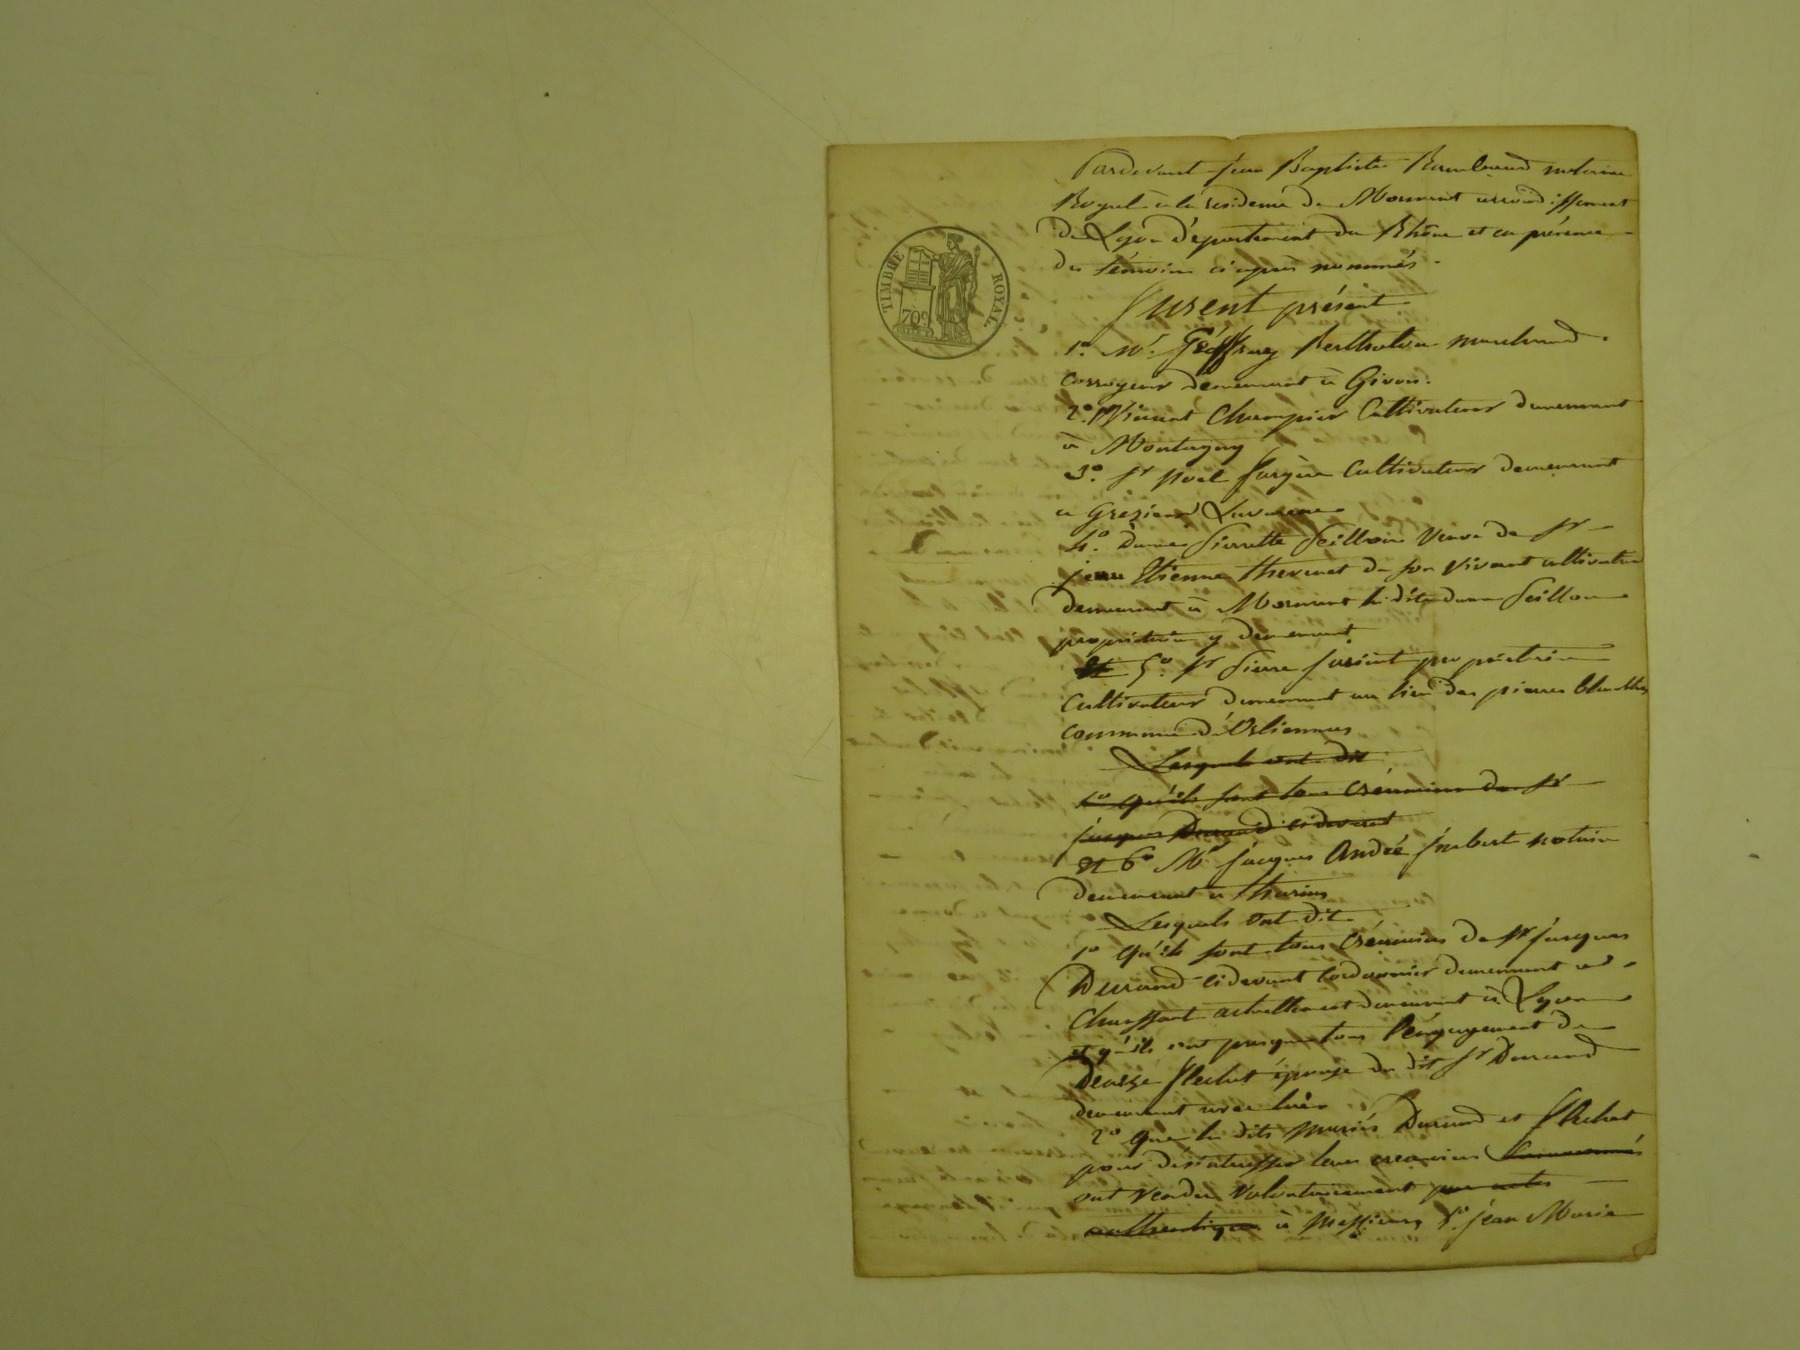 Pardevant Jean Baptiste notaire
Royal à la résidence de Mornant arrondissement
de Lyon département du Rhône et en présence
des témoins ci après nommés.
TIMBRE ROYAL
70c
Furent présent
1º. Mr. Geoffray Bertholon marchand
corroyeur demeurant à Givors.
2º. Vincent Champier Cultivateur demeurant
à Montagny
3º. Sr Noel Cultivateur demeurant
a Grézieu
4º. Dame Pierrette Peillon Veuve de Sr
jean Etienne thevenet de son vivant cultivateur
demeurant à Mornant la dite dame Peillon
propriétaire y demeurant
Et 5º. Sr Pierre propriétaire
Cultivateur demeurant au lieu des pierres blanches
commune d'Orliennas
Lesquels ont dit
1º qu'ils sont tous Créanciers du Sr
jacques Durand cidevant
Et 6º Me jacques André imbert notaire
demeurant à thurins
Lesquels ont dit
1º Qu'ils sont tous Créanciers de Sr jacques
Durand cidevant Cordonnier demeurant a
Chaussant actuellement demeurant à Lyon
et qu'ils ont presque tous l'engagement de
Flechet épouse du dit Sr Durand
demeurant avec lui
2º Que les dits mariés Durand et Flechet
pour désintéresser leurs creanciers
ont vendu volontairement par actes
authentiques à Messieurs 1º. jean Marie